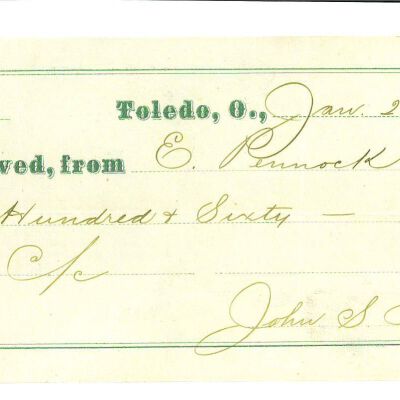 Toledo, O., Jan. 2
ved, from E. Pennock
Hundred & Sixty —
C/c
John S.